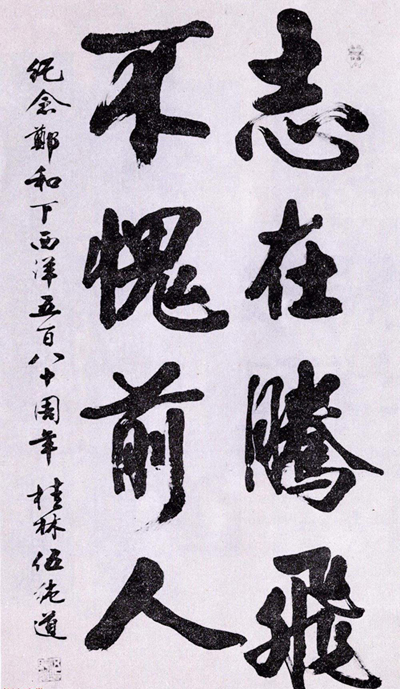 志在騰飛
不愧前人
纪念鄭和下西洋五百八十周年 桂林伍纯道